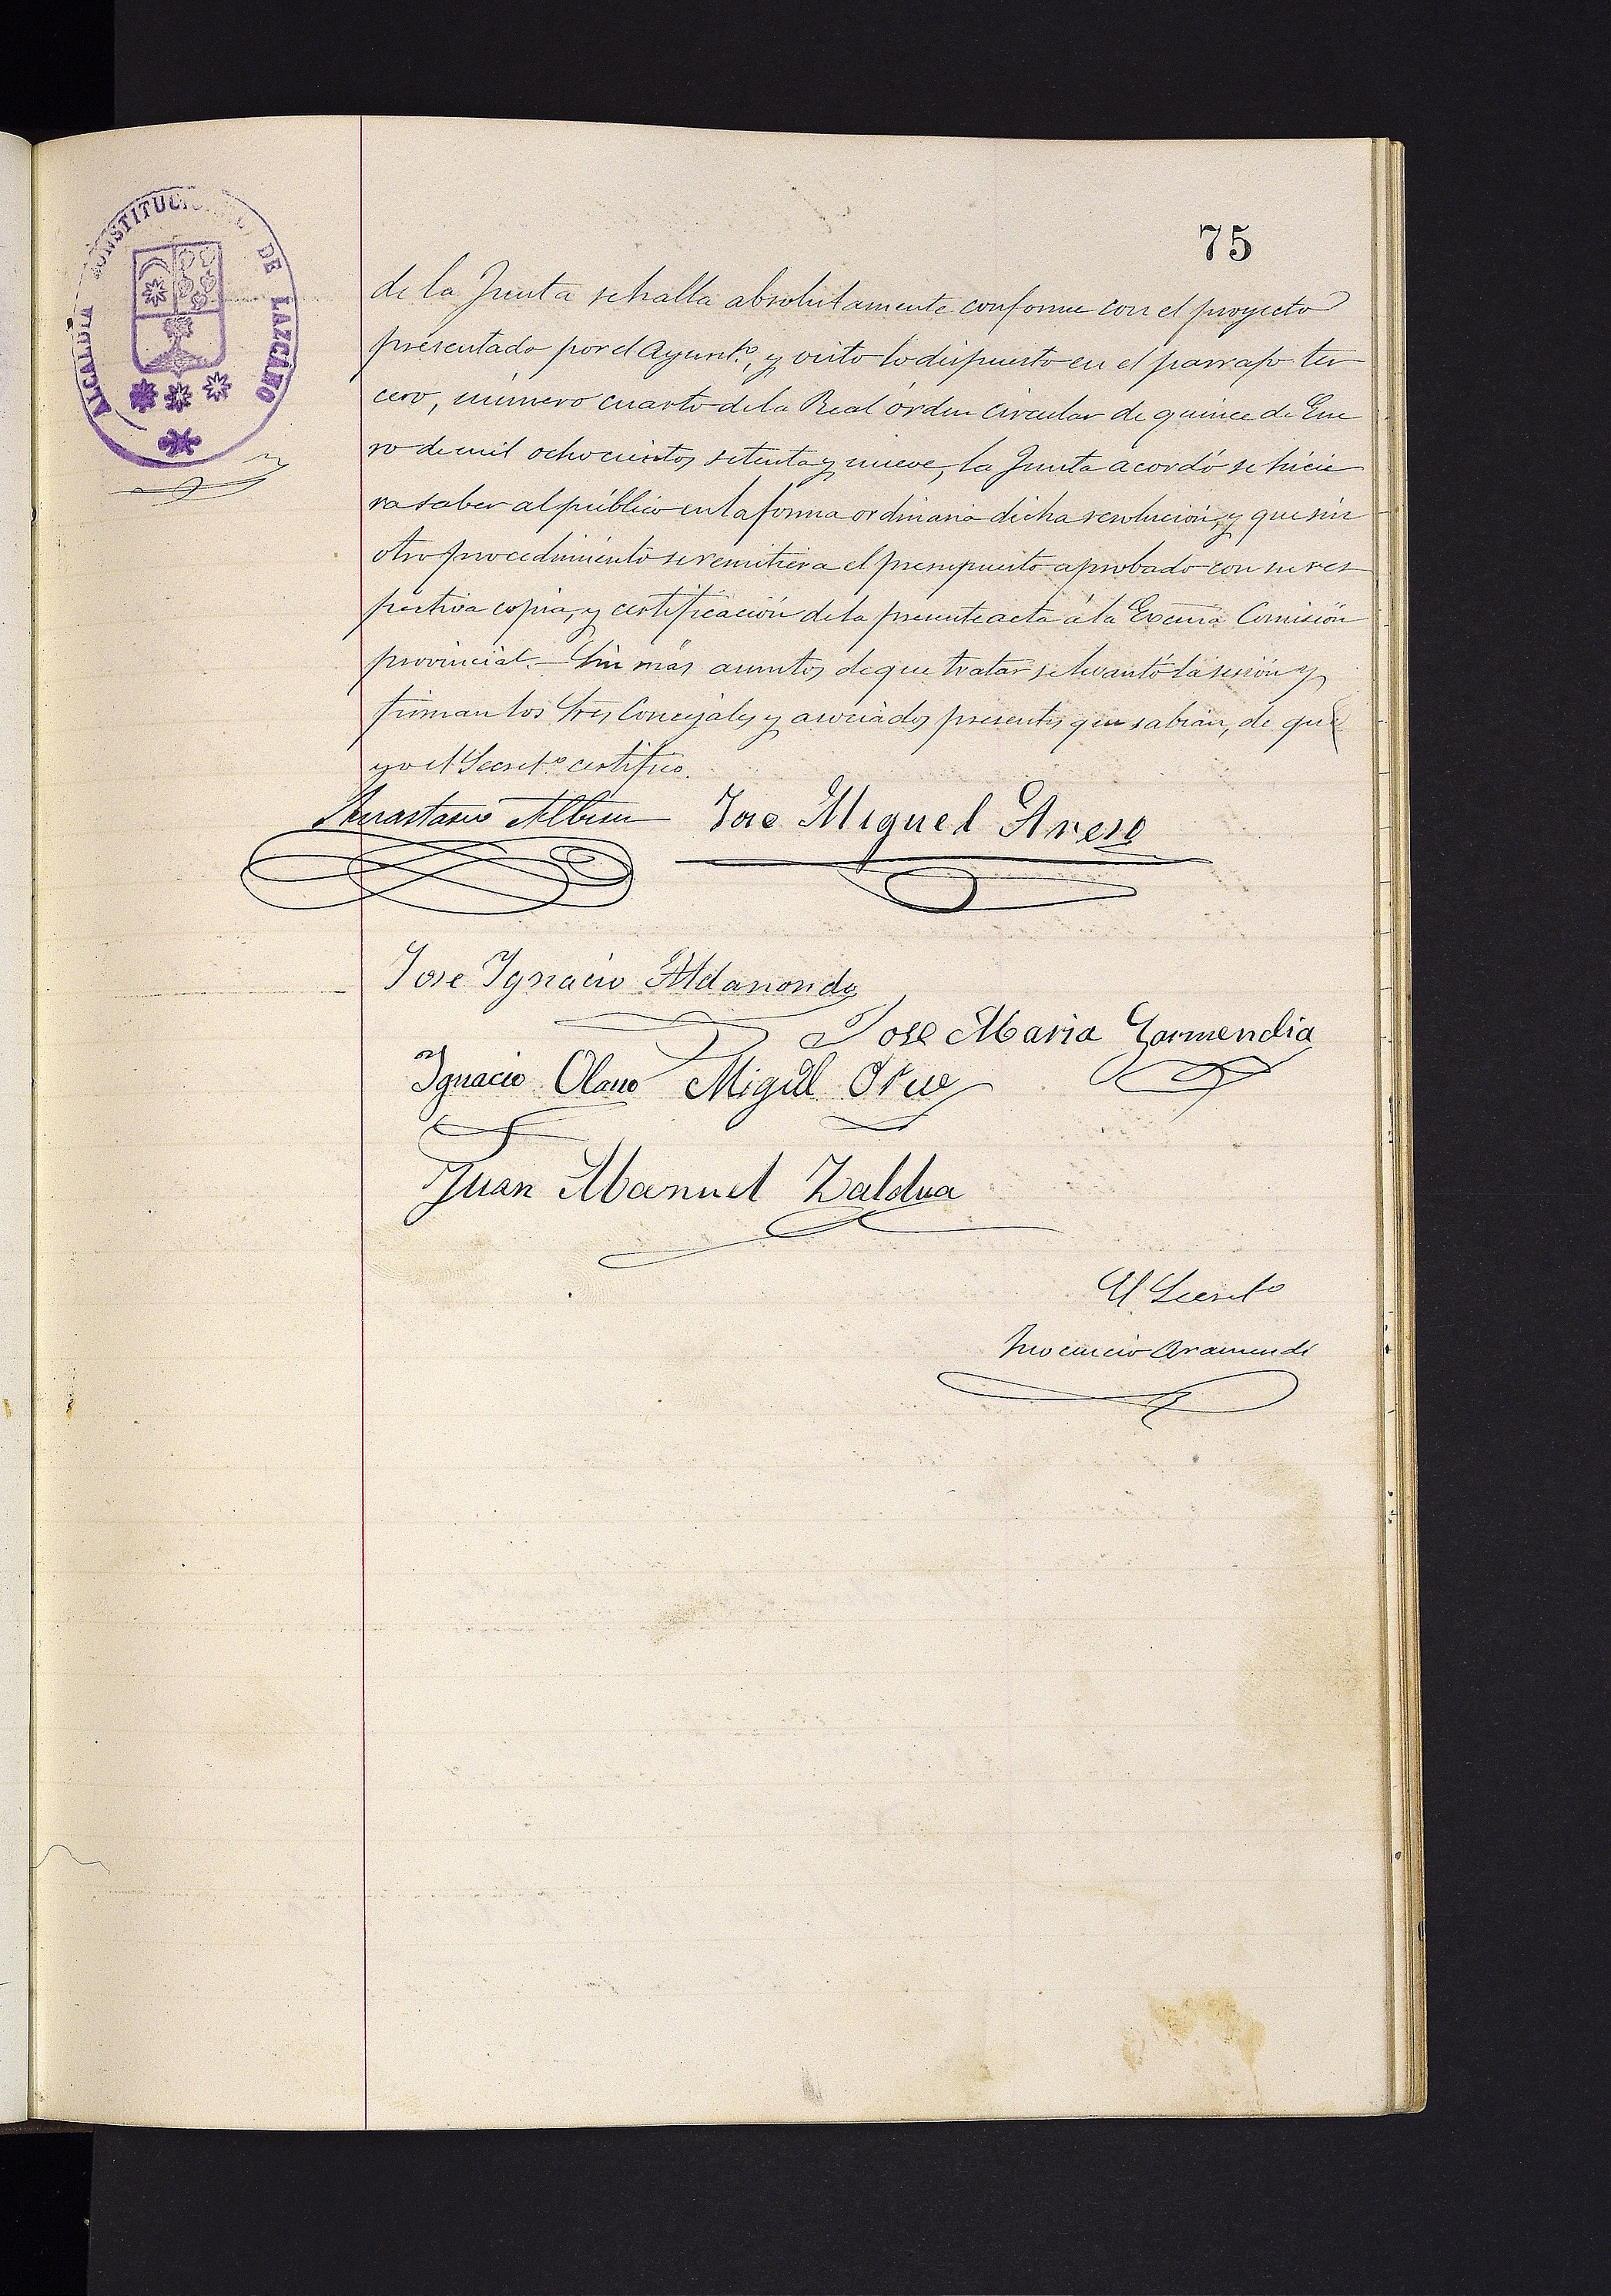 75
ALCALDIA CONSTITUCIONAL DE LAZCANO
de la Junta se halla absolutamente conforme con el proyecto
presentado por el Ayunt.º, y visto lo dispuesto en el parrafo ter
cero, número cuarto de la Real órden circular de quince de Ene
ro de mil ochocientos setenta y nueve, la Junta acordó se hicie
ra saber al público en la forma ordinaria dicha resolución, y que sin
otro procedimiento se remitiera el presupuesto aprobado con su res
pectiva copia, y certificación de la presente acta á la Excma Comisión
provincial.- Sin más asuntos de que tratar se levantó la sesión y
firman los Sres Concejales y asociados presentes que sabian, de que
yo el Secret.º certifico.
Anastasio Albisu Jose Miguel Areso
Jose Ignacio Aldanondo
Jose Maria Garmendia
Ignacio Olano Miguel
Juan Manuel Zaldua
El Secretº
Inocencio Aramendi